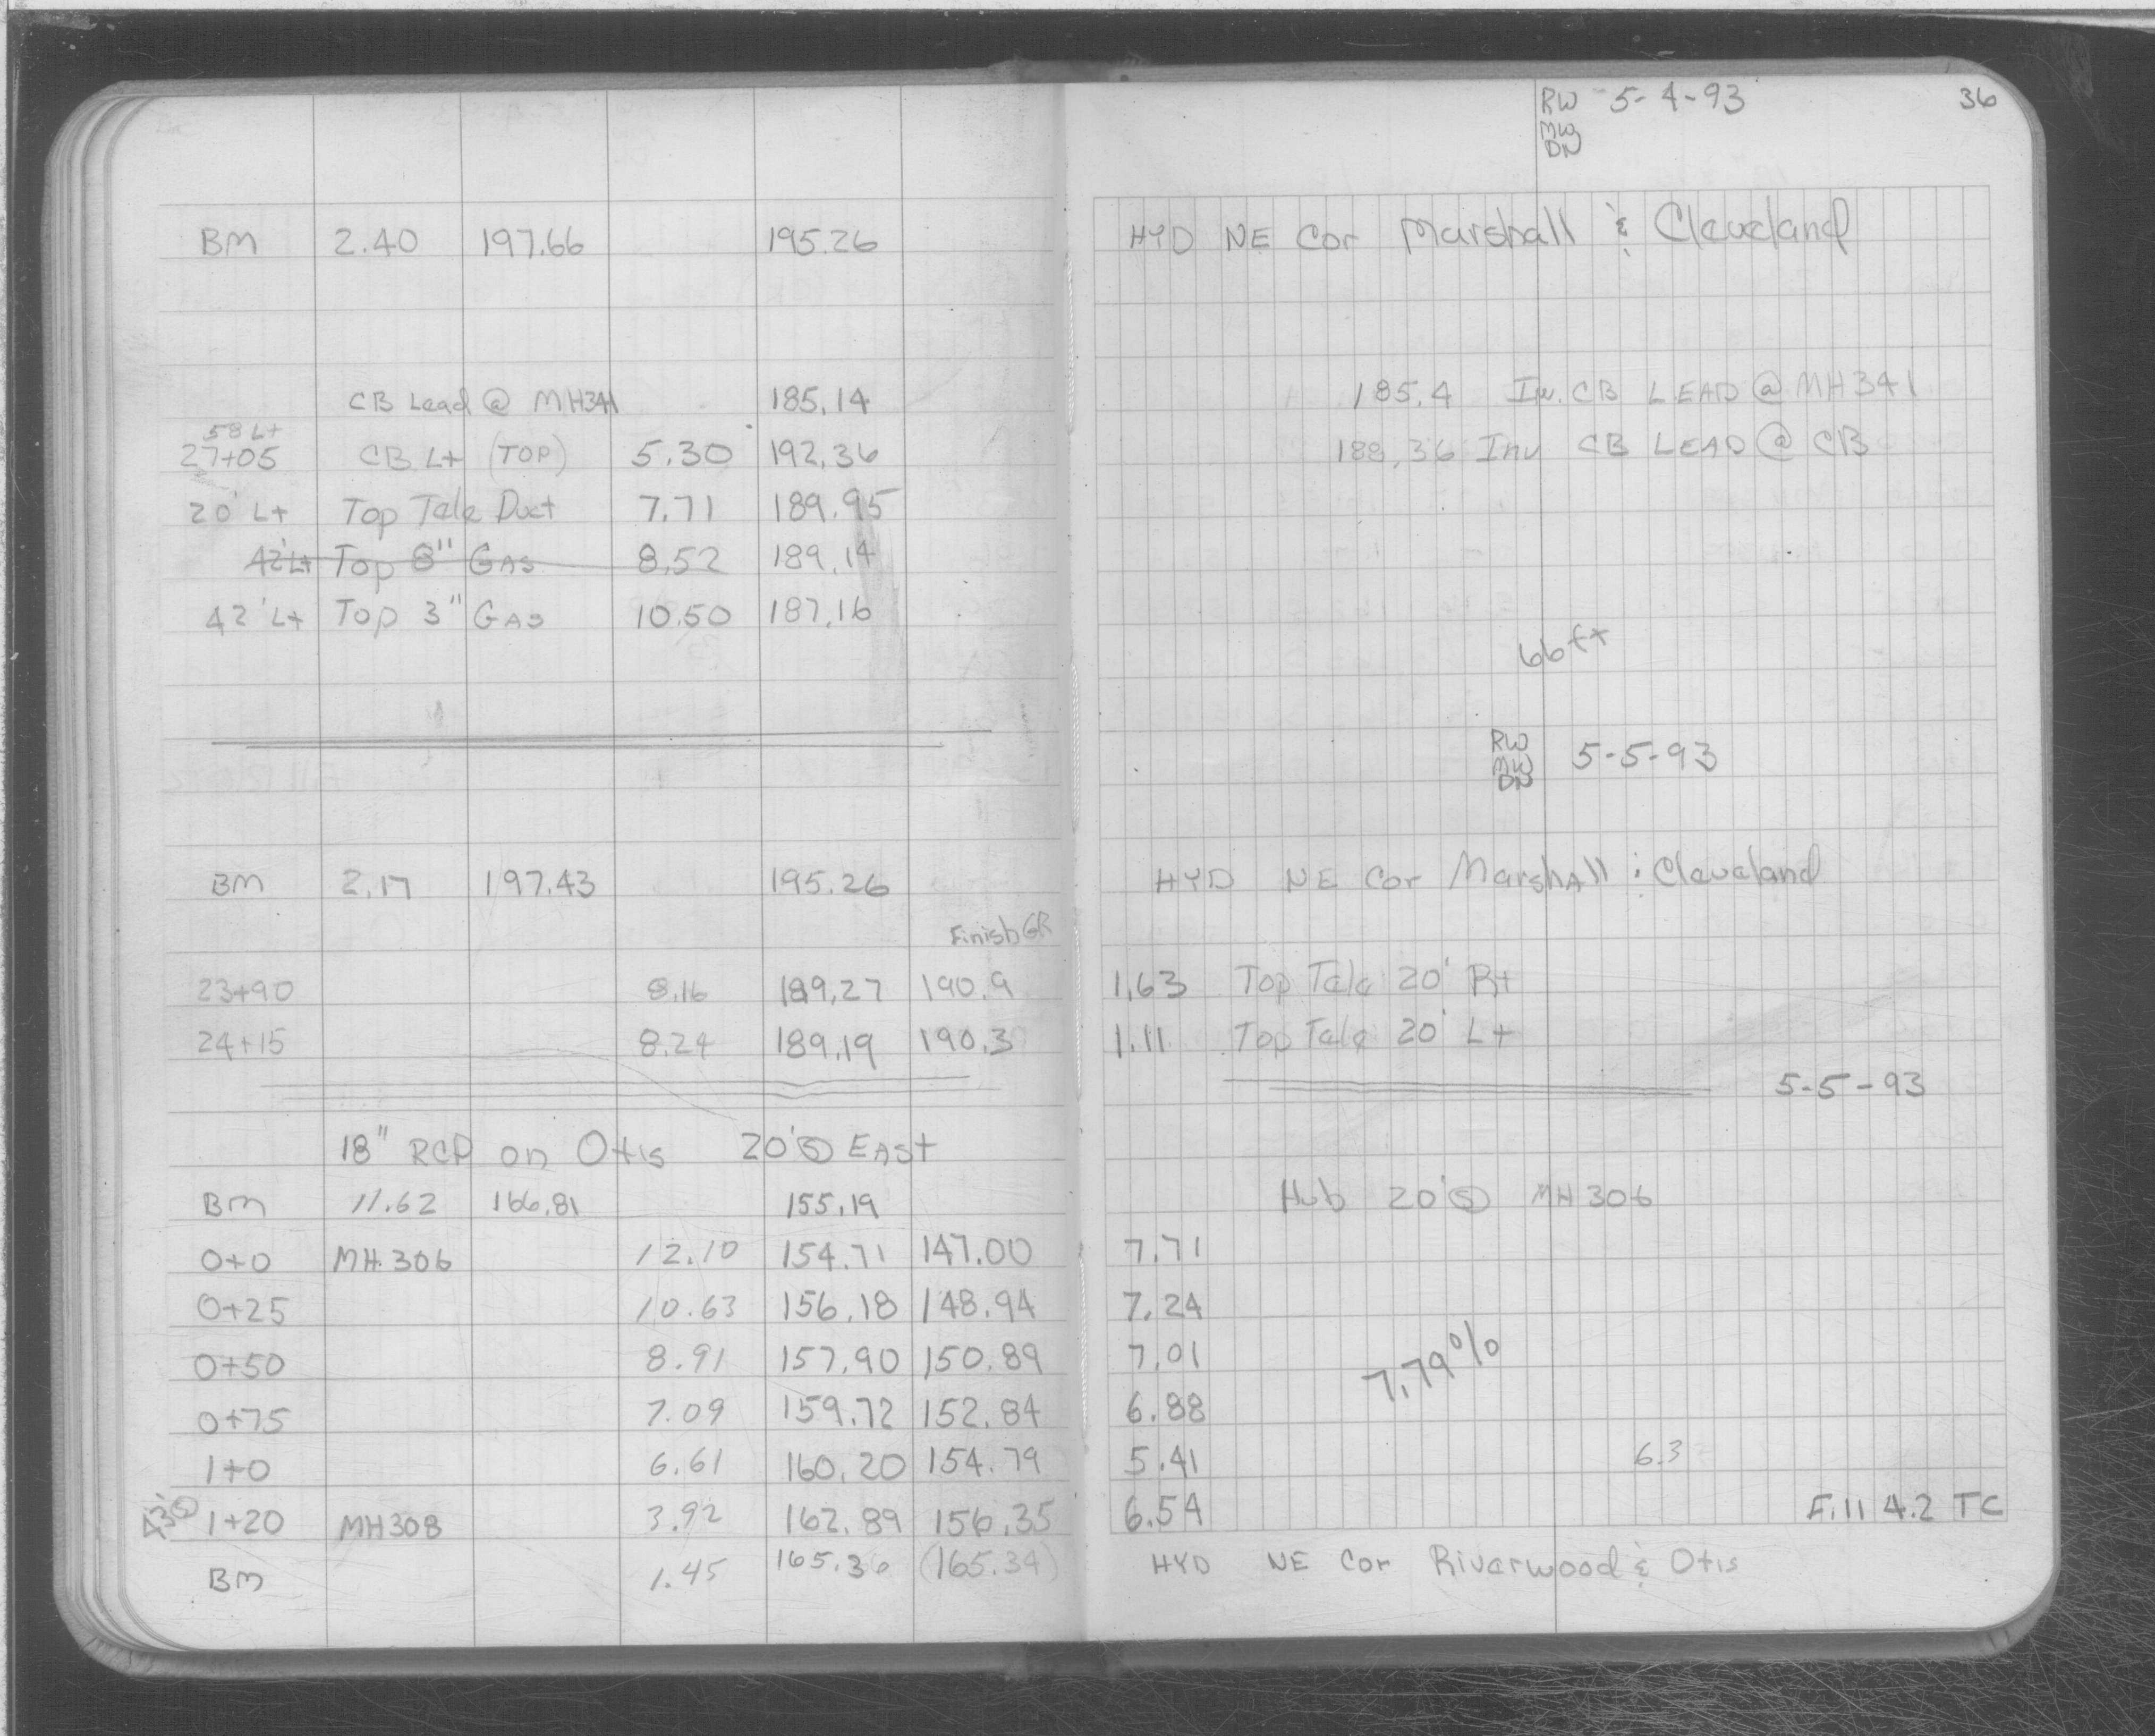 RW 5-4-93 36
MW
DN
BM 2.40 197.66 195.26 HYD NE Cor Marshall & Cleveland
CB Lead @ MH341 185.14 185.4 Inv. CB LEAD @ MH341
58 Lt
27+05 CB Lt (TOP) 5.30 192.36 188.36 Inv CB LEAD @ CB
20' Lt Top Tele Duct 7.71 189.95
42' Lt Top 8" GAS 8.52 189.14
42' Lt Top 3" GAS 10.50 187.16
66 ft
RW
MW 5-5-93
DN
BM 2.17 197.43 195.26 HYD NE Cor Marshall & Cleveland
Finish GR
23+90 8.16 189.27 190.9 1.63 Top Tele 20' Rt
24+15 8.24 189.19 190.3 1.11 Top Tele 20' Lt
5-5-93
18" RCP on Otis 20' Ⓢ EAST
BM 11.62 166.81 155.19 Hub 20' Ⓢ MH 306
0+0 MH.306 12.10 154.71 147.00 7.71
0+25 10.63 156.18 148.94 7.24
0+50 8.91 157.90 150.89 7.01
7.79%
0+75 7.09 159.72 152.84 6.88
1+0 6.61 160.20 154.79 5.41 6.3
1+20 MH308 3.92 162.89 156.35 6.54 Fill 4.2 TC
BM 1.45 165.36 (165.34) HYD NE Cor Riverwood & Otis